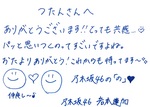 つたんさんへ
ありがとうございます!!とても共感…☺
パッと思いつくのってすごいですよね。
おたよりありがとう!これからも待ってます〜♪
乃木坂46の「の」♥
仲良し〜
乃木坂46